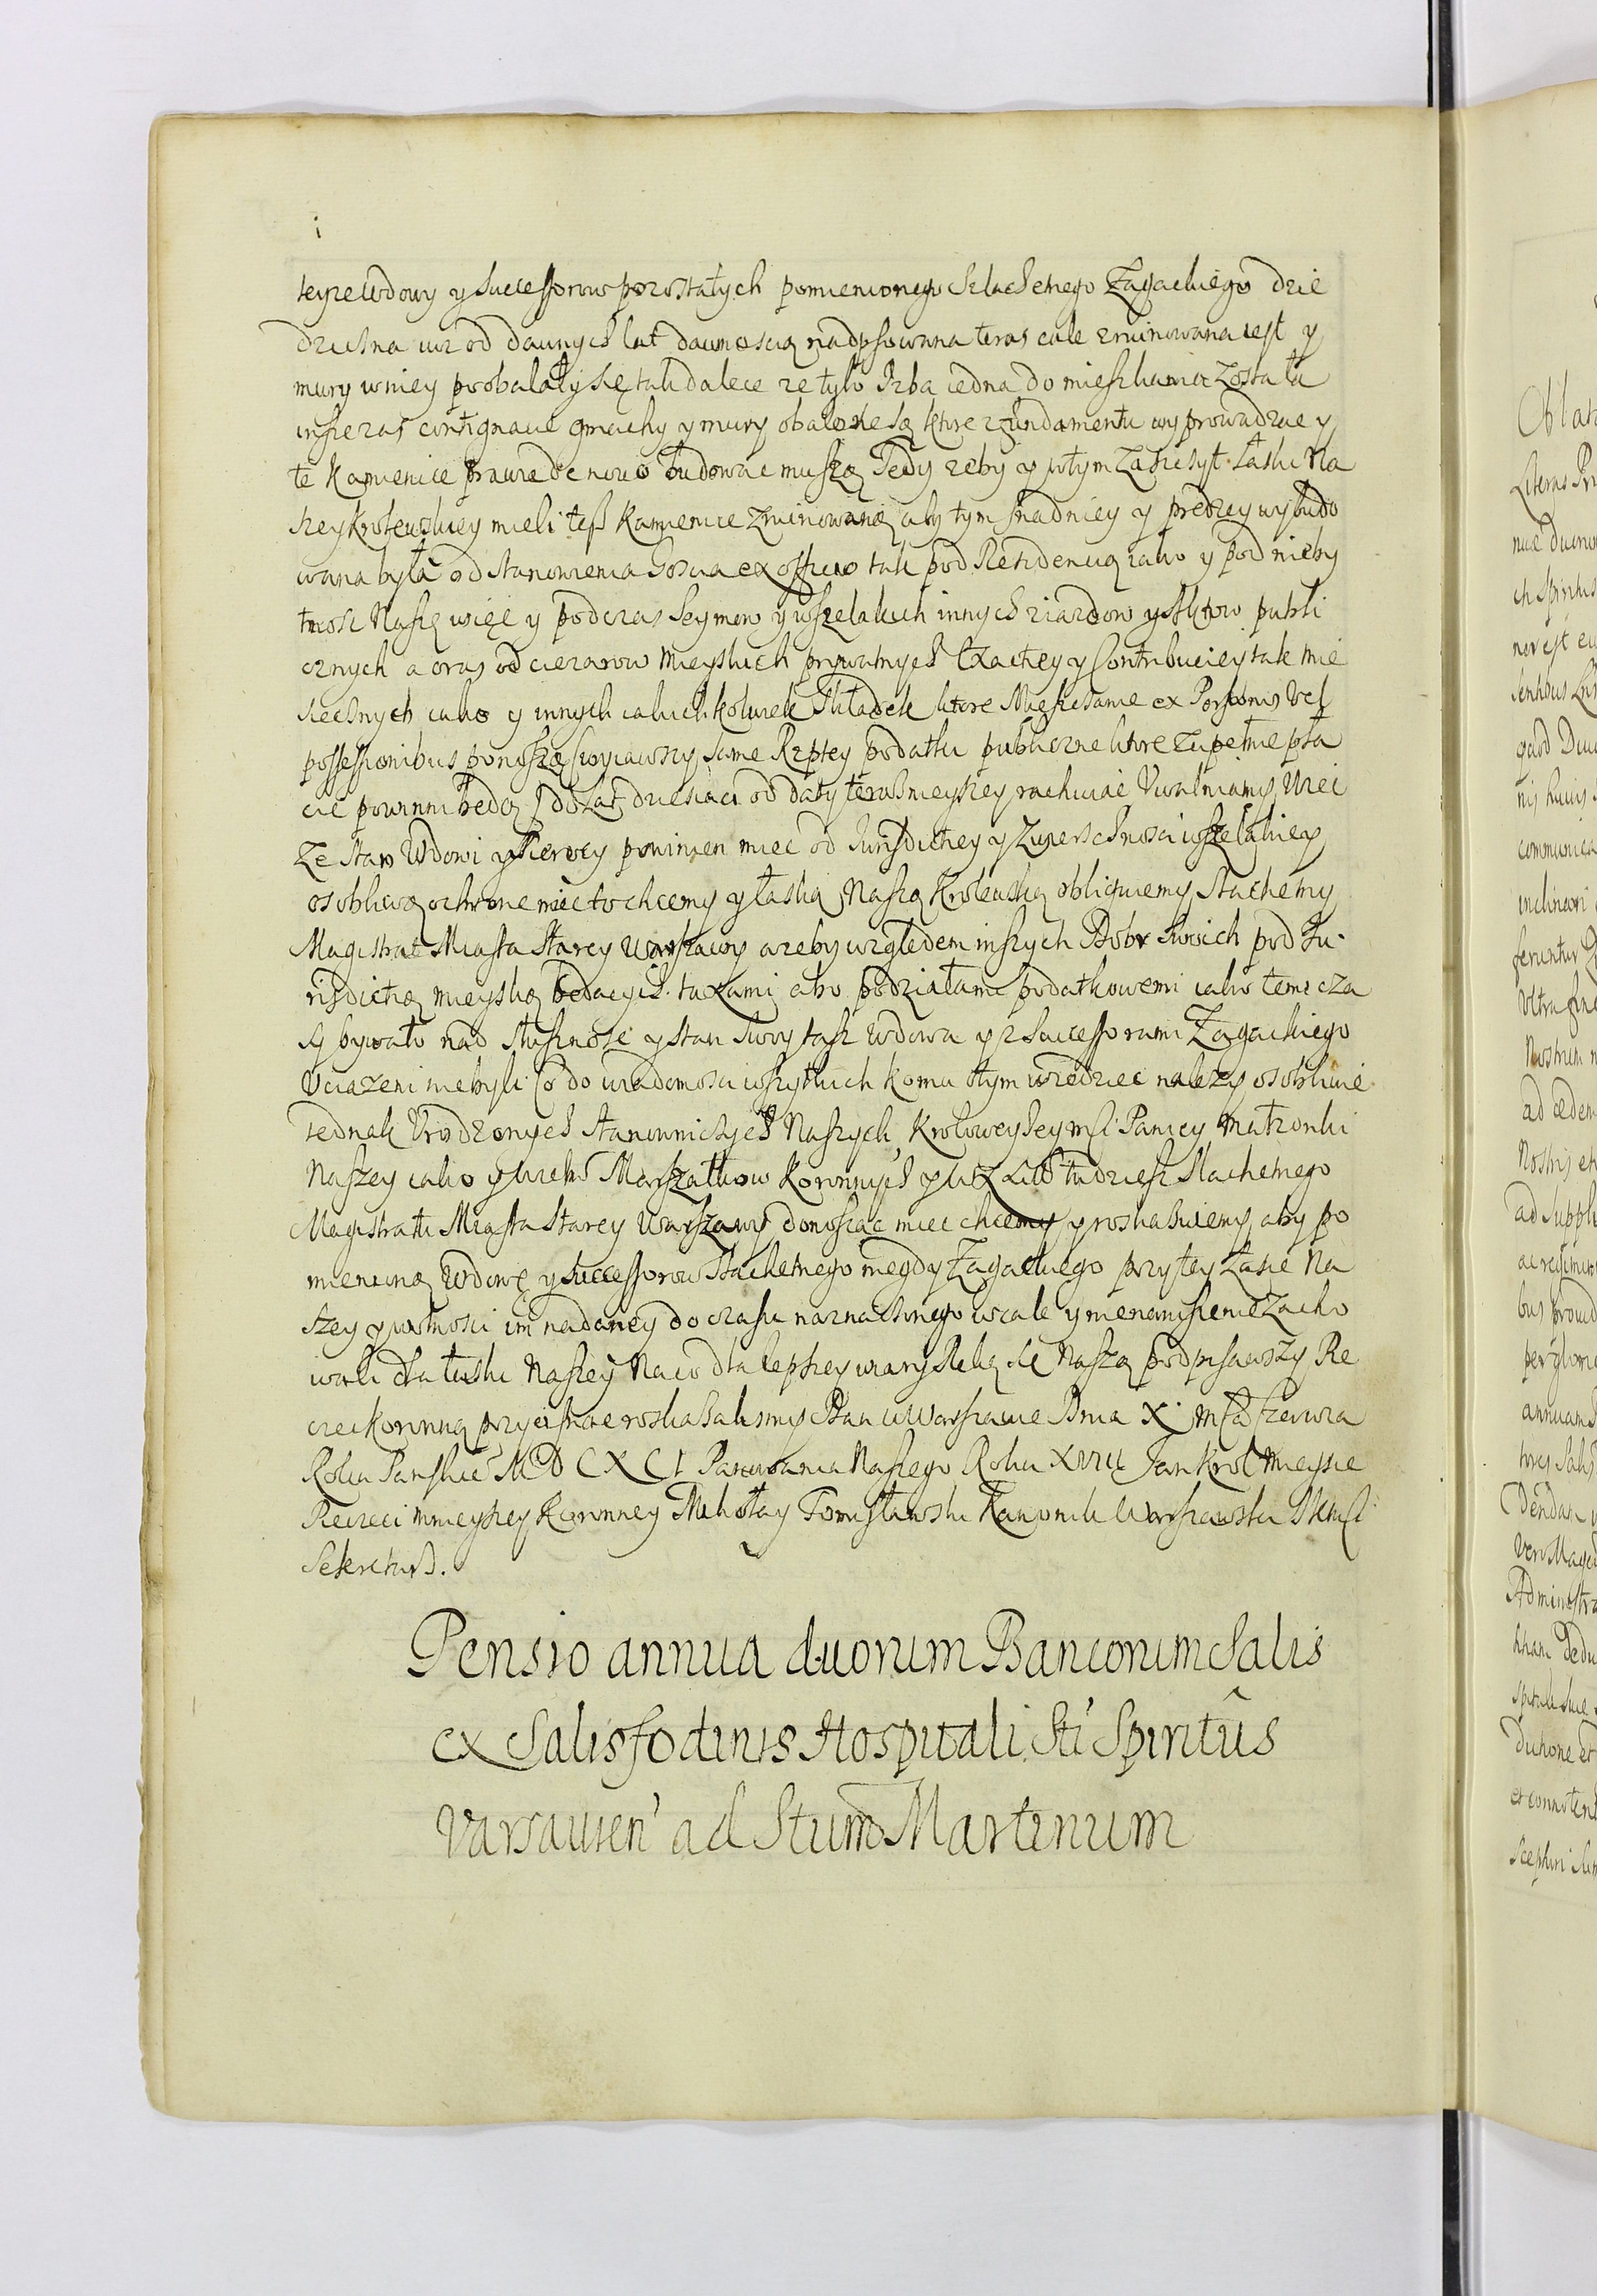 teyze Wdowy y Successorow pozostałych pomienionego Szlachetnego Zagackiego dzie
dziczna iuz od dawnych lat dawnoscią nadpsowana teras cale zruinowana iest y
mury wniey poobalały się tak dalece ze tylo Izba iedna do mieszkania została
insze zas contignacie gmachy y mury obalone są ktore z fundamentu wyprowadzac y
te Kamienice prawie de novo budowac muszą Tedy zeby y wtym zaszczyt Łaski Na
szey Krolewskiey mieli tesz Kamienice zruinowaną aby tym snadniey y prędzey wybudo
wana była od stanowienia Goscia ex officio tak pod Residencią iako y pod nieby
tnosc Naszą więc y podczas Seymow y wszelakich innych ziazdow y Aktow publi
cznych a oras od cięzarow Mieyskich prywatnych Exactiey y Contribuciey tak mie
siecznych iako y innych iakichkolwiek Składek ktore Mieszczanie ex Personis vel
possessionibus ponoszą (wyiąwszy same Rzptey podatki publiczne ktore zupełnie pła
cic powinni będą) do Lat dziesiąci od daty terasnieyszey rachuiac Uwalniamy. Wiec
ze stan Wdowi y Sierocy powinien miec od Jurisdictiey y Zwierzchnosci wszelakiey
osobliwą ochrone miec to chcemy y łaską Naszą Krolewską obliguiemy Slachetny
Magistrat Miasta Starey Warszawy azeby względem inszych Dobr swoich pod Ju
risdictią mieyską będących taxami abo podziałami podatkowemi iako temi cza
sy bywało nad słusznosc y stan swoy tasz Wdowa y z Successorami Zagackiego
Uciązeni niebyli Co do wiadomosci wszytkich komu otym wiedziec nalezy osobliwie
iednak Urodzonych Stanowniczych Naszych, Krolowey Jeymsci Paniey Matzonki
Naszey iako y Wielm Marszałkow Koronnych y WXLitt tudziesz Slachetnego
Magistratu Miasta Starey Warszawy donosząc miec chcemy y roskazuiemy aby po
mienioną Wdowę y Successorow Slachetnego niegdy Zagackiego przy tey Łasce Na
szey y wolnosci im nadaney do czasu naznaczonego wcale y nienaruszenie zacho
wali dla łaski Naszey Na co dla lepszey wiary Ręką się Naszą podpisawszy Pie
częc koronną przycisnąc roskazalismy Dan w Warszawie Dnia X. Msca Czerwca
Roku Panskie MDCXCI Panowania Naszego Roku XVIII Jan Krol Mieysce
Pieczęci mnieyszey Koronney Mikołay Tomisławski Kanonik Warszawski JKMsci
Sekretarz.
Pensio annua duorum Banconum Salis
ex Salisfodinis Hospitali Sti Spiritûs
Varsavien' ad Stum Martinum